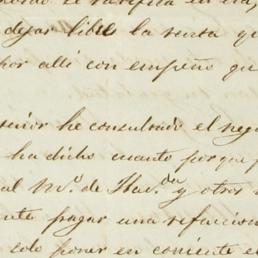 dejar libre la renta qu
hor alli con empeño que
señor he consultado el nego
ha dicho cuanto porque p
al Mo. de Hacda y otros
nte pagar una refaccion
solo poner en corriente el